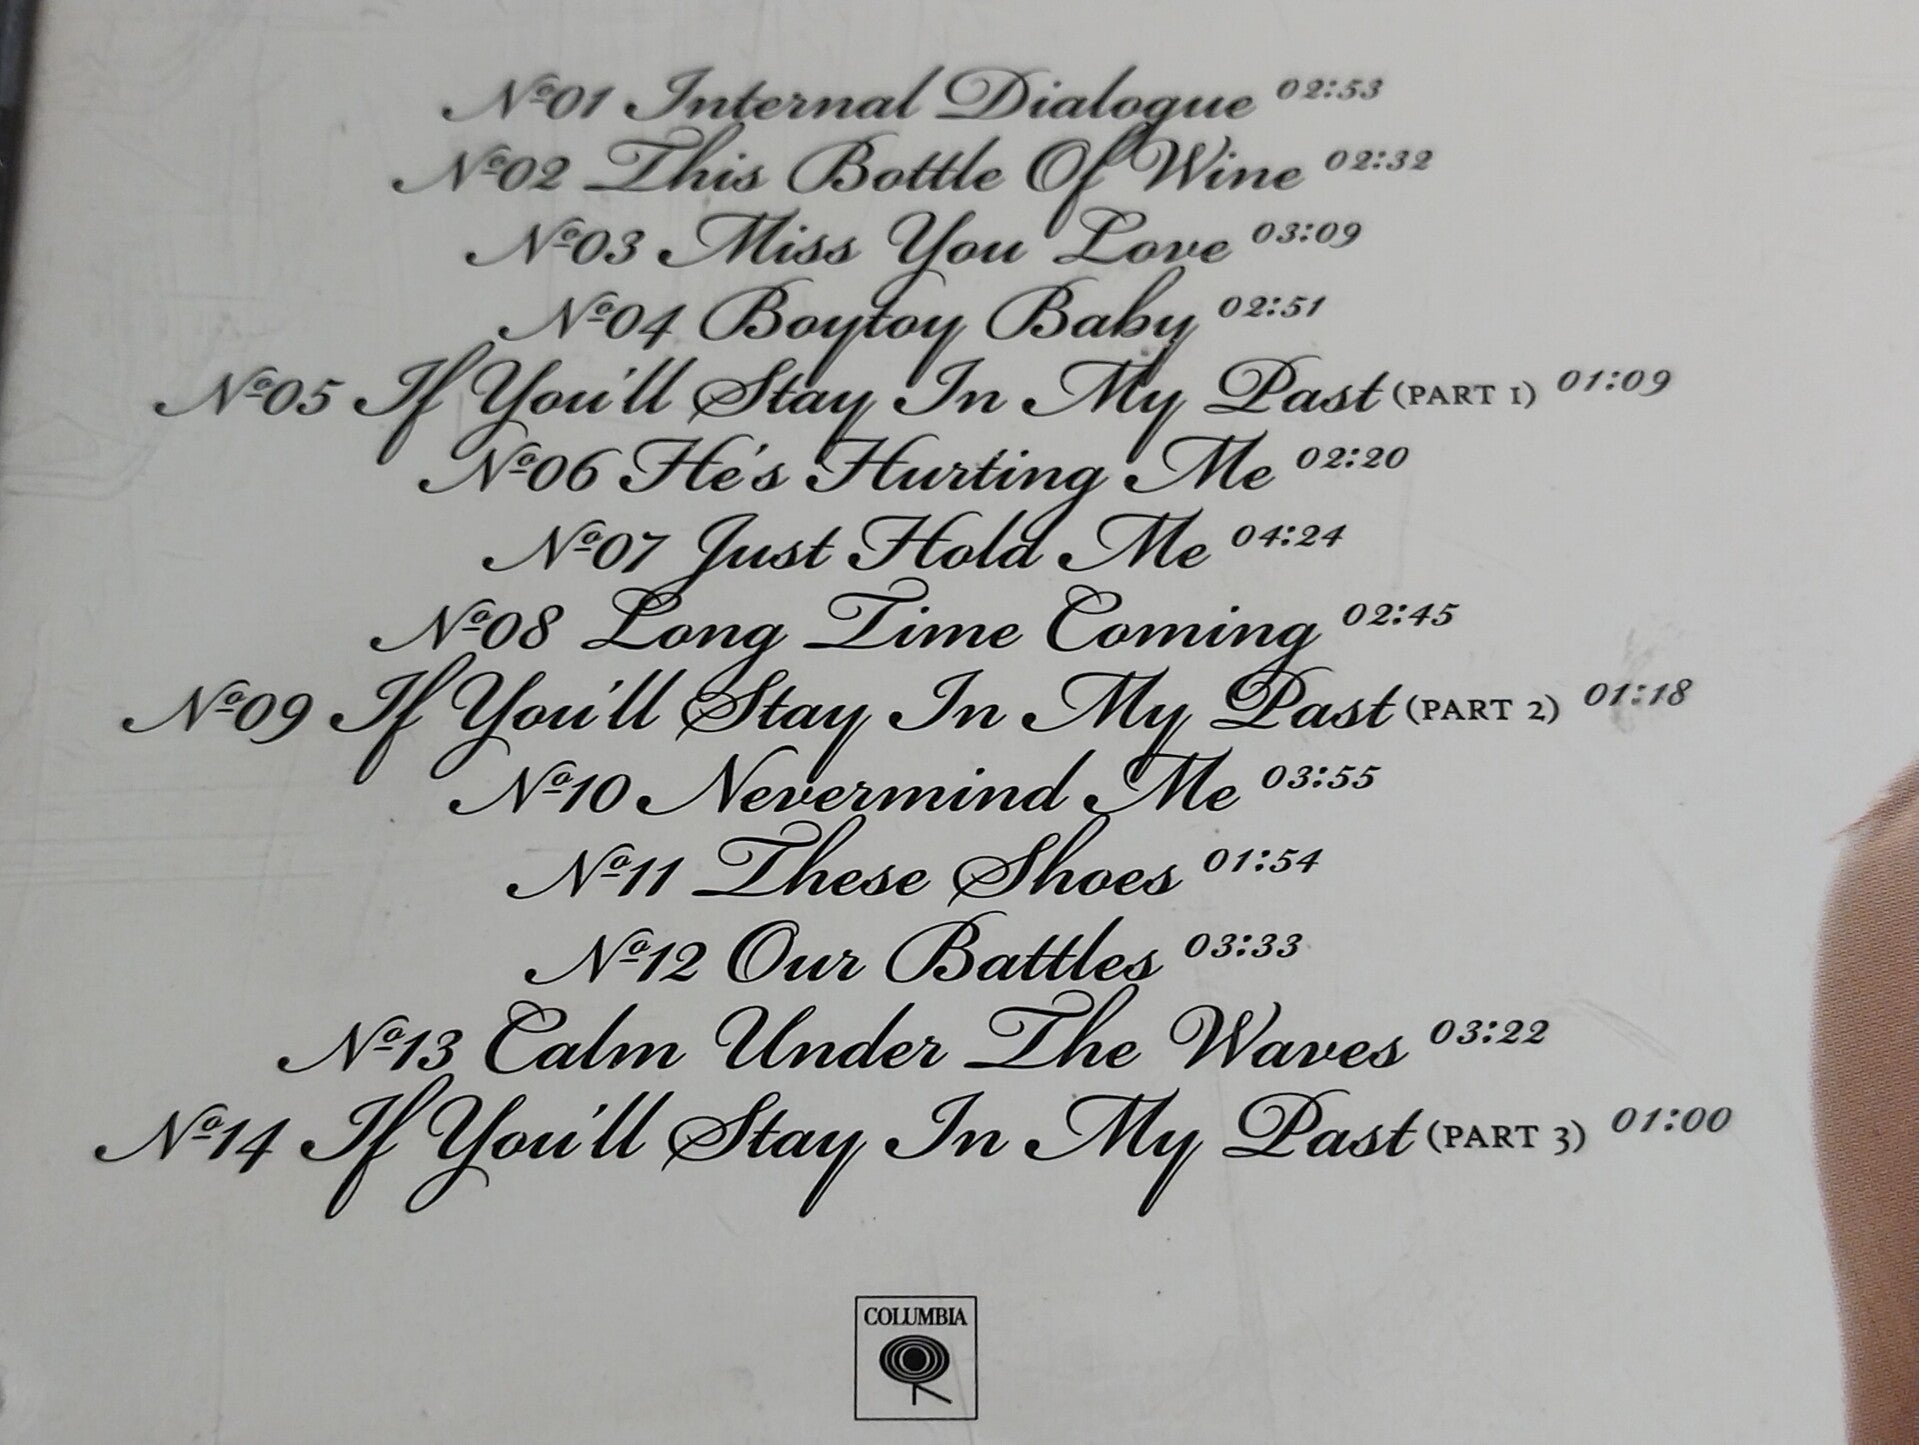 Nº01 Internal Dialogue 02:53
Nº02 This Bottle Of Wine 02:32
Nº03 Miss You Love 03:09
Nº04 Boytoy Baby 02:51
Nº05 If You'll Stay In My Past (PART 1) 01:09
Nº06 He's Hurting Me 02:20
Nº07 Just Hold Me 04:24
Nº08 Long Time Coming 02:45
Nº09 If You'll Stay In My Past (PART 2) 01:18
Nº10 Nevermind Me 03:55
Nº11 These Shoes 01:54
Nº12 Our Battles 03:33
Nº13 Calm Under The Waves 03:22
Nº14 If You'll Stay In My Past (PART 3) 01:00
COLUMBIA